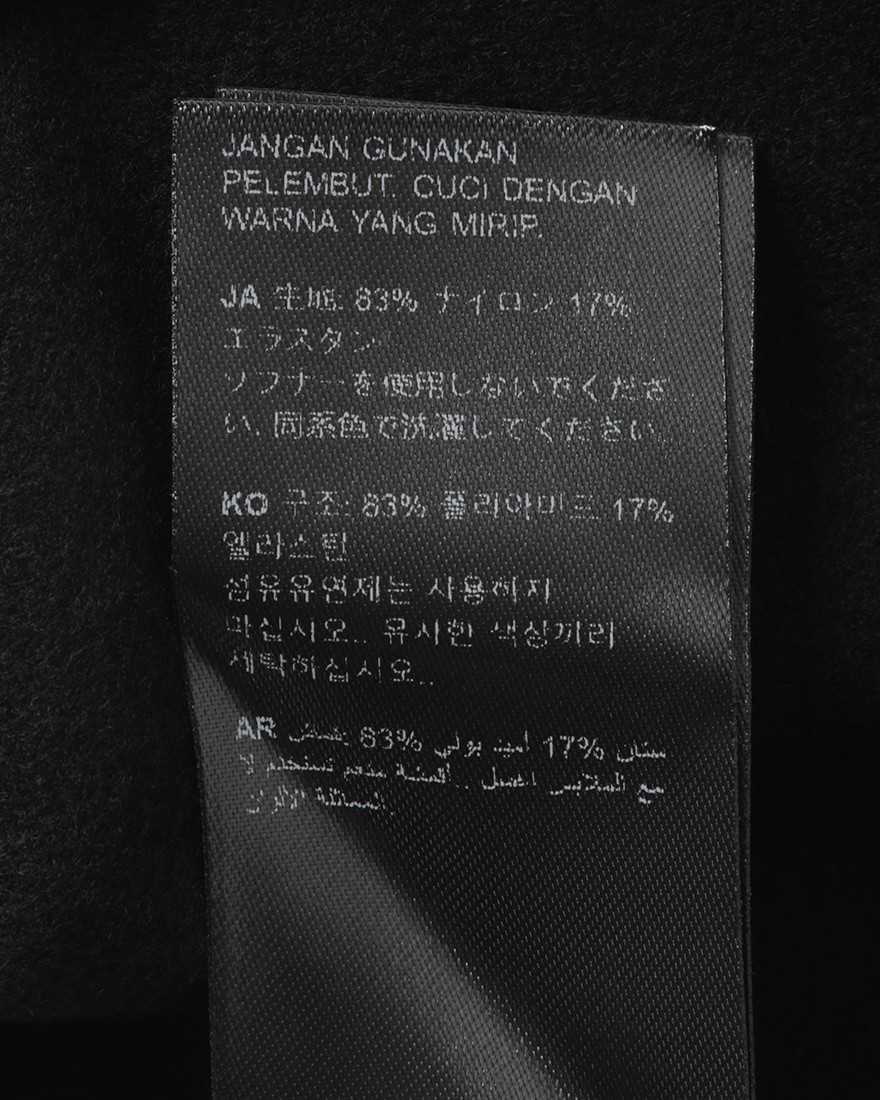 JANGAN GUNAKAN
PELEMBUT. CUCI DENGAN
WARNA YANG MIRIP.
JA 生地: 83% ナイロン 17%
エラスタン
ソフナーを使用しないでくださ
い. 同系色で洗濯してください.
KO 구조: 83% 폴리아미드 17%
엘라스틴
섬유유연제는 사용하지
마십시오.. 유사한 색상끼리
세탁하십시오..
AR 83% أميد بولي 17% ستان
أقمشة منعم تستخدم لا .. اغسل الملابس مع
الألوان